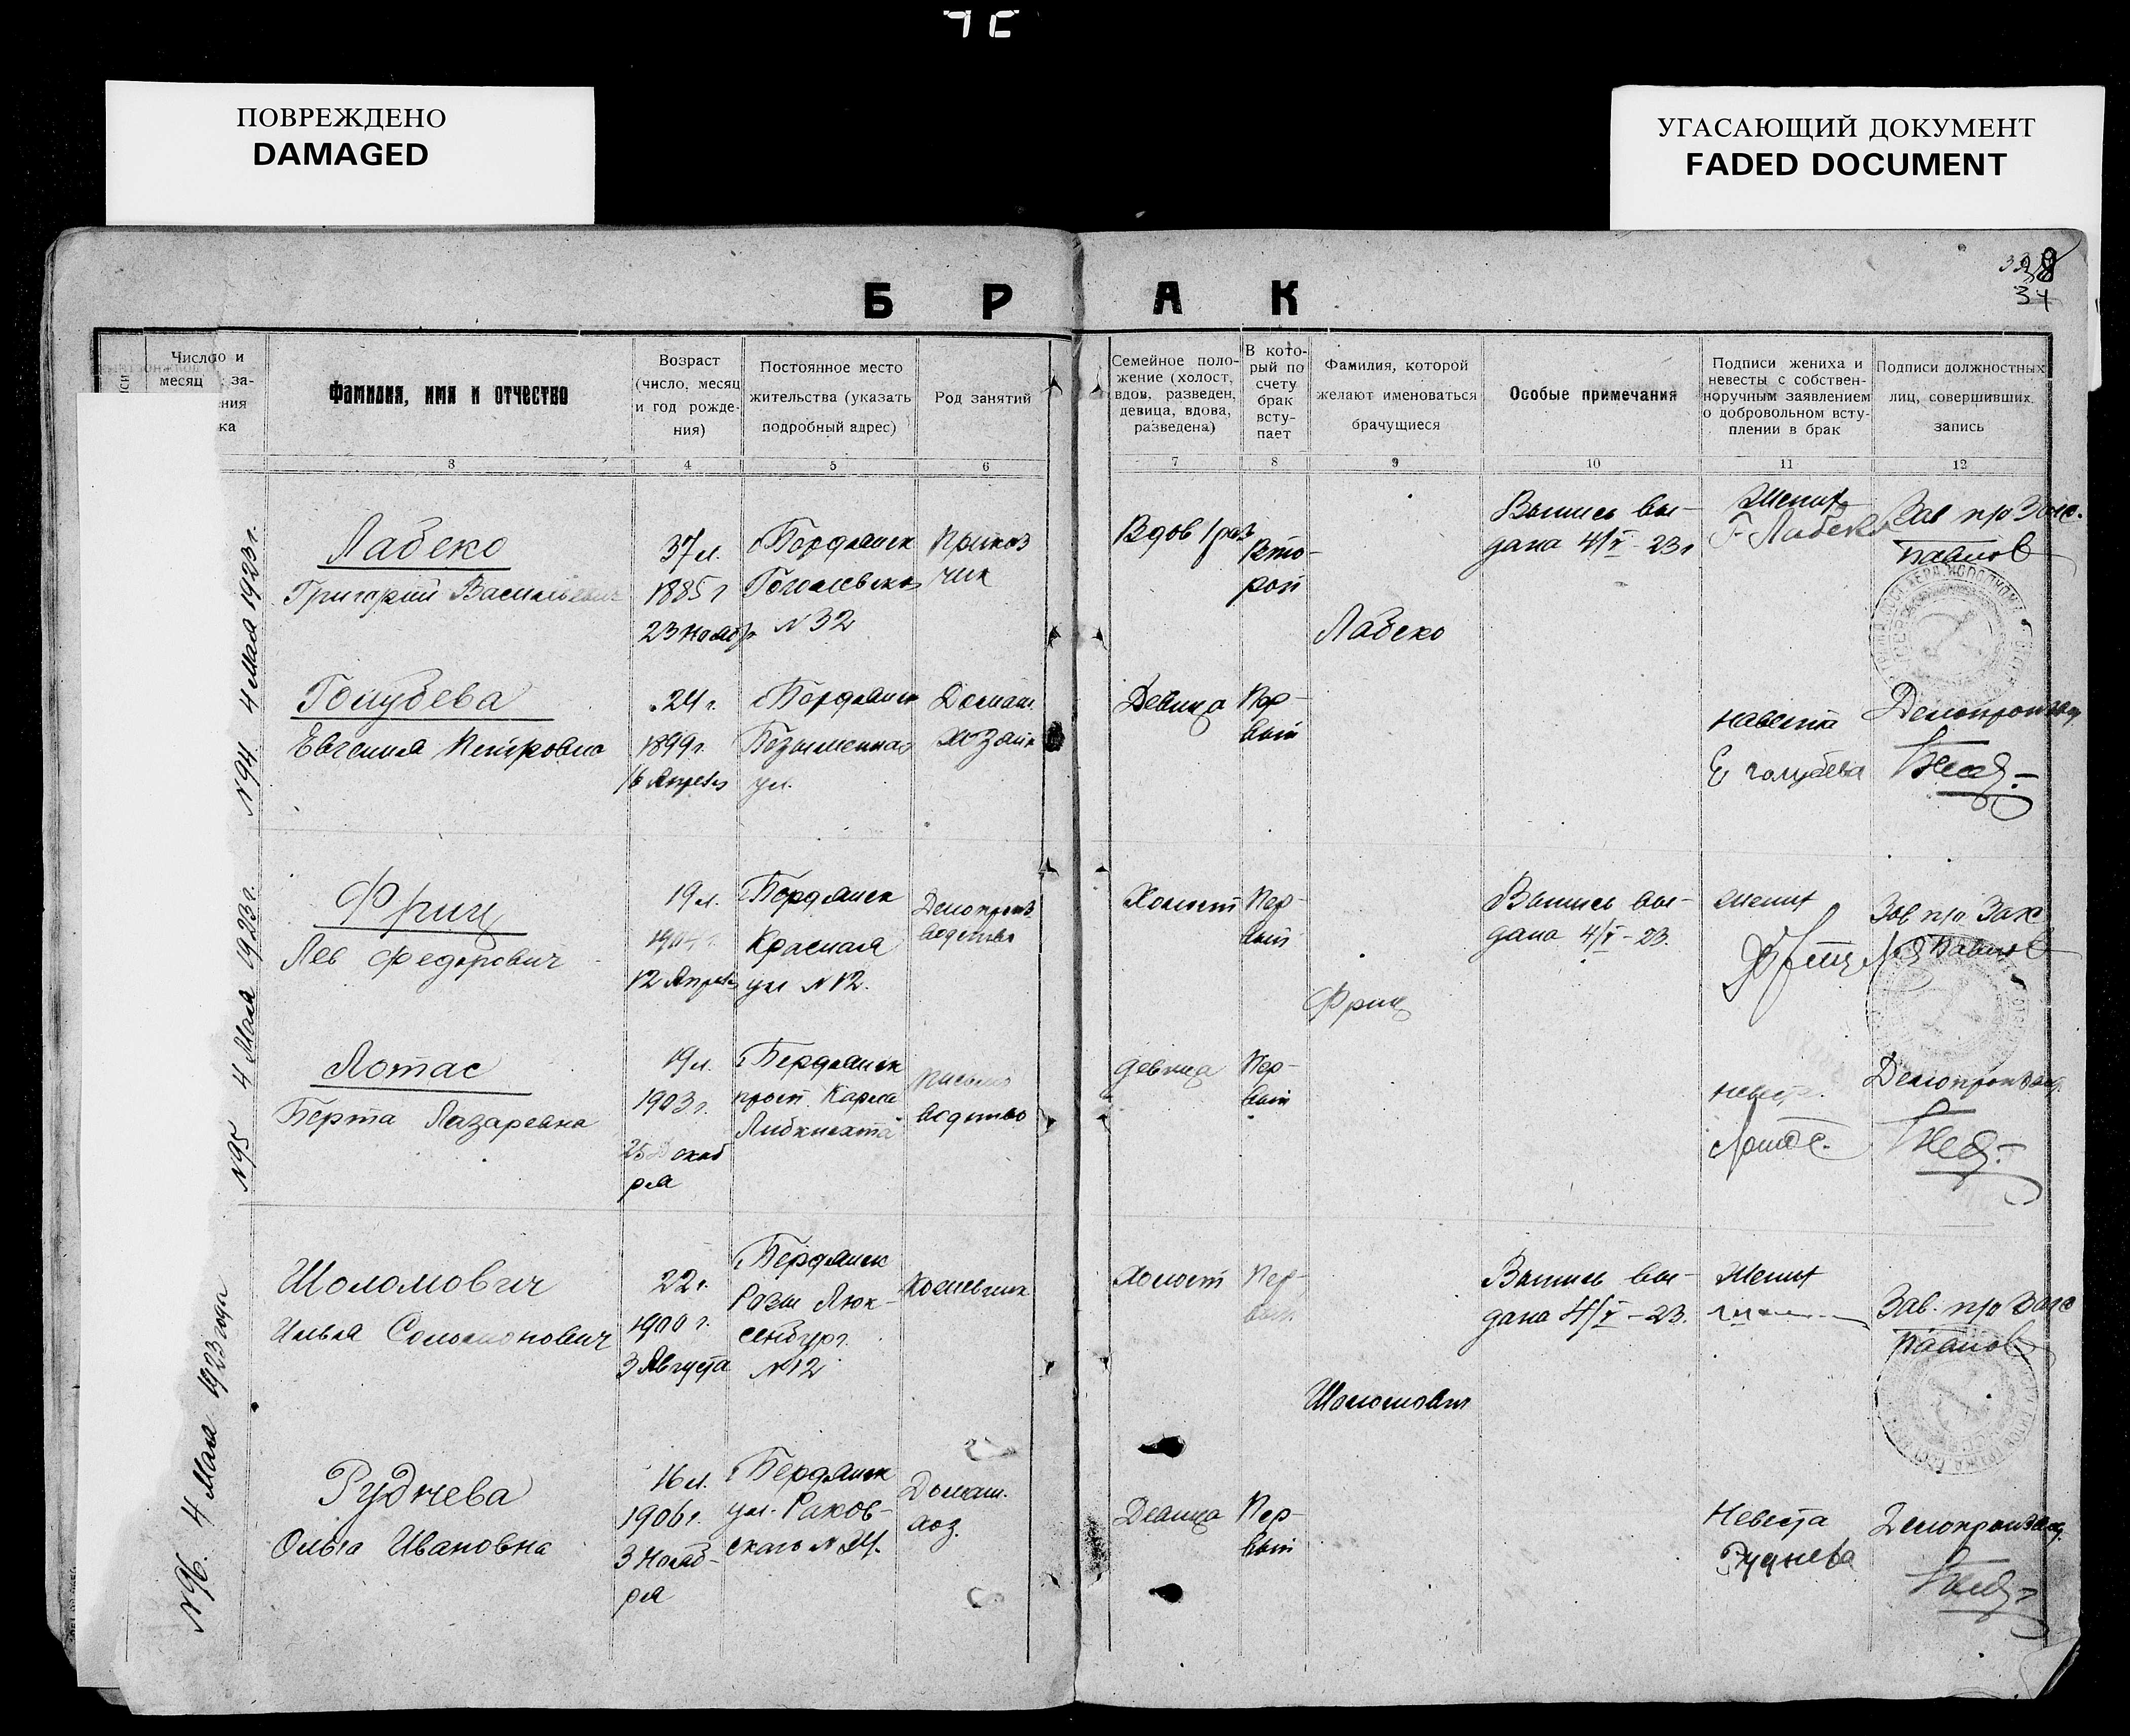 ПОВРЕЖДЕНО
DAMAGED
УГАСАЮЩИЙ ДОКУМЕНТ
FADED DOCUMENT
34
БРАК
Число и
месяц за-
ния
ка
Фамилия, имя и отчество
Возраст
(число, месяц
и год рожде-
ния)
Постоянное место
жительства (указать
подробный адрес)
Род занятий
Семейное поло-
жение (холост,
вдов, разведен,
девица, вдова,
разведена)
В кото-
рый по
счету
брак
всту-
пает
Фамилия, которой
желают именоваться
брачущиеся
Особые примечания
Подписи жениха и
невесты с собствен-
норучным заявлением
о добровольном всту-
плении в брак
Подписи должностных
лиц, совершивших
запись
3
4
5
6
7
8
9
10
11
12
N94 4 Мая 1923 г.
Лабеко
Григорий Васильевич
37 л.
1885 г
23 Ноябр
Бердянск
Гоголевская
N 32
Приказ
чик
Вдов
Вто-
рой
Лабеко
Выпись вы-
дана 4/V - 23 г
Жених
Г. Лабеко
Зав п/о Загс.
Голубева
Евгения Петровна
24 г.
1899 г.
16 Апреля
Бердянск
Безыменная
ул.
Домаш.
хозяйк
Девица
Пер-
вый
невеста
Е Голубева
Делопроизвод
N95 4 Мая 1923 г.
Фриц
Лев Федорович
19 л.
12 Апреля
Бердянск
Красная
ул N 12.
Делопроиз
водство
Холост
Пер-
вый
Фриц
Выпись вы-
дана 4/V - 23.
жених
Зав п/о Загс
Лотас
Берта Лазаревна
19 л.
1903 г.
25 Декаб
ря
Бердянск
просп. Карла
Либкнехта
письмо
водство
девица
Пер-
вый
невес.
Лотас.
Делопроизвод.
N96. 4 Мая 1923 года
Шоломович
Илья Соломонович
22 г.
1900 г.
3 Августа
Бердянск
Розы Люк-
сенбург.
N 12
Холост
Пер-
вый.
Шоломович
Выпись вы-
дана 4/V - 23.
Жених
Зав. п/о Загс
Руднева
Ольга Ивановна
16 л.
1906 г.
3 Нояб-
ря
Бердянск
ул. Раков-
ского N 24.
Домаш.
хоз.
Девица
Пер-
вый
Невеста
Руднева
Делопроизвод.